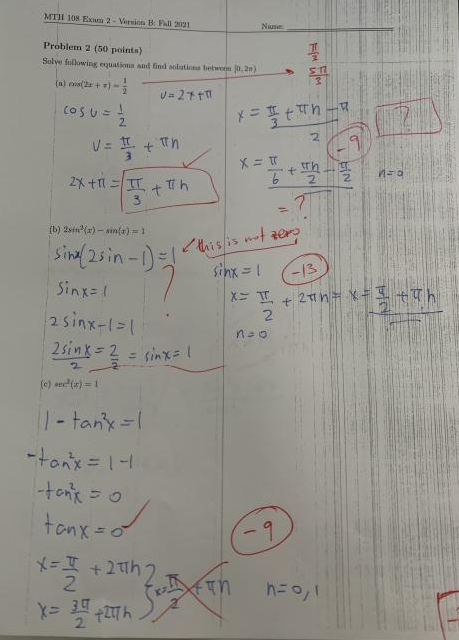 MTH 108 Exam 2 - Version B: Fall 2021
Name:
Problem 2 (50 points)
Solve following equations and find solutions between [0, 2π)
π/3
5π/3
(a) cos(2x + π) = 1/2
U = 2x + π
cos U = 1/2
U = π/3 + πn
2x + π = π/3 + πn
x = (π/3 + πn - π)/2
?
-9
x = π/6 + πn/2 - π/2
n=0
= ?
(b) 2sin²(x) − sin(x) = 1
sinx(2sin - 1) = 1
this is not zero
?
sinx = 1
2sinx - 1 = 1
2sinx/2 = 2/2 = sinx = 1
sinx = 1
-13
x = π/2 + 2πn = x = π/2 + πn
n=0
(c) sec²(x) = 1
1 - tan²x = 1
-tan²x = 1 - 1
-tan²x = 0
tanx = 0
-9
x = π/2 + 2πn
x = 3π/2 + 2πn
x = π/2 + πn
n = 0, 1